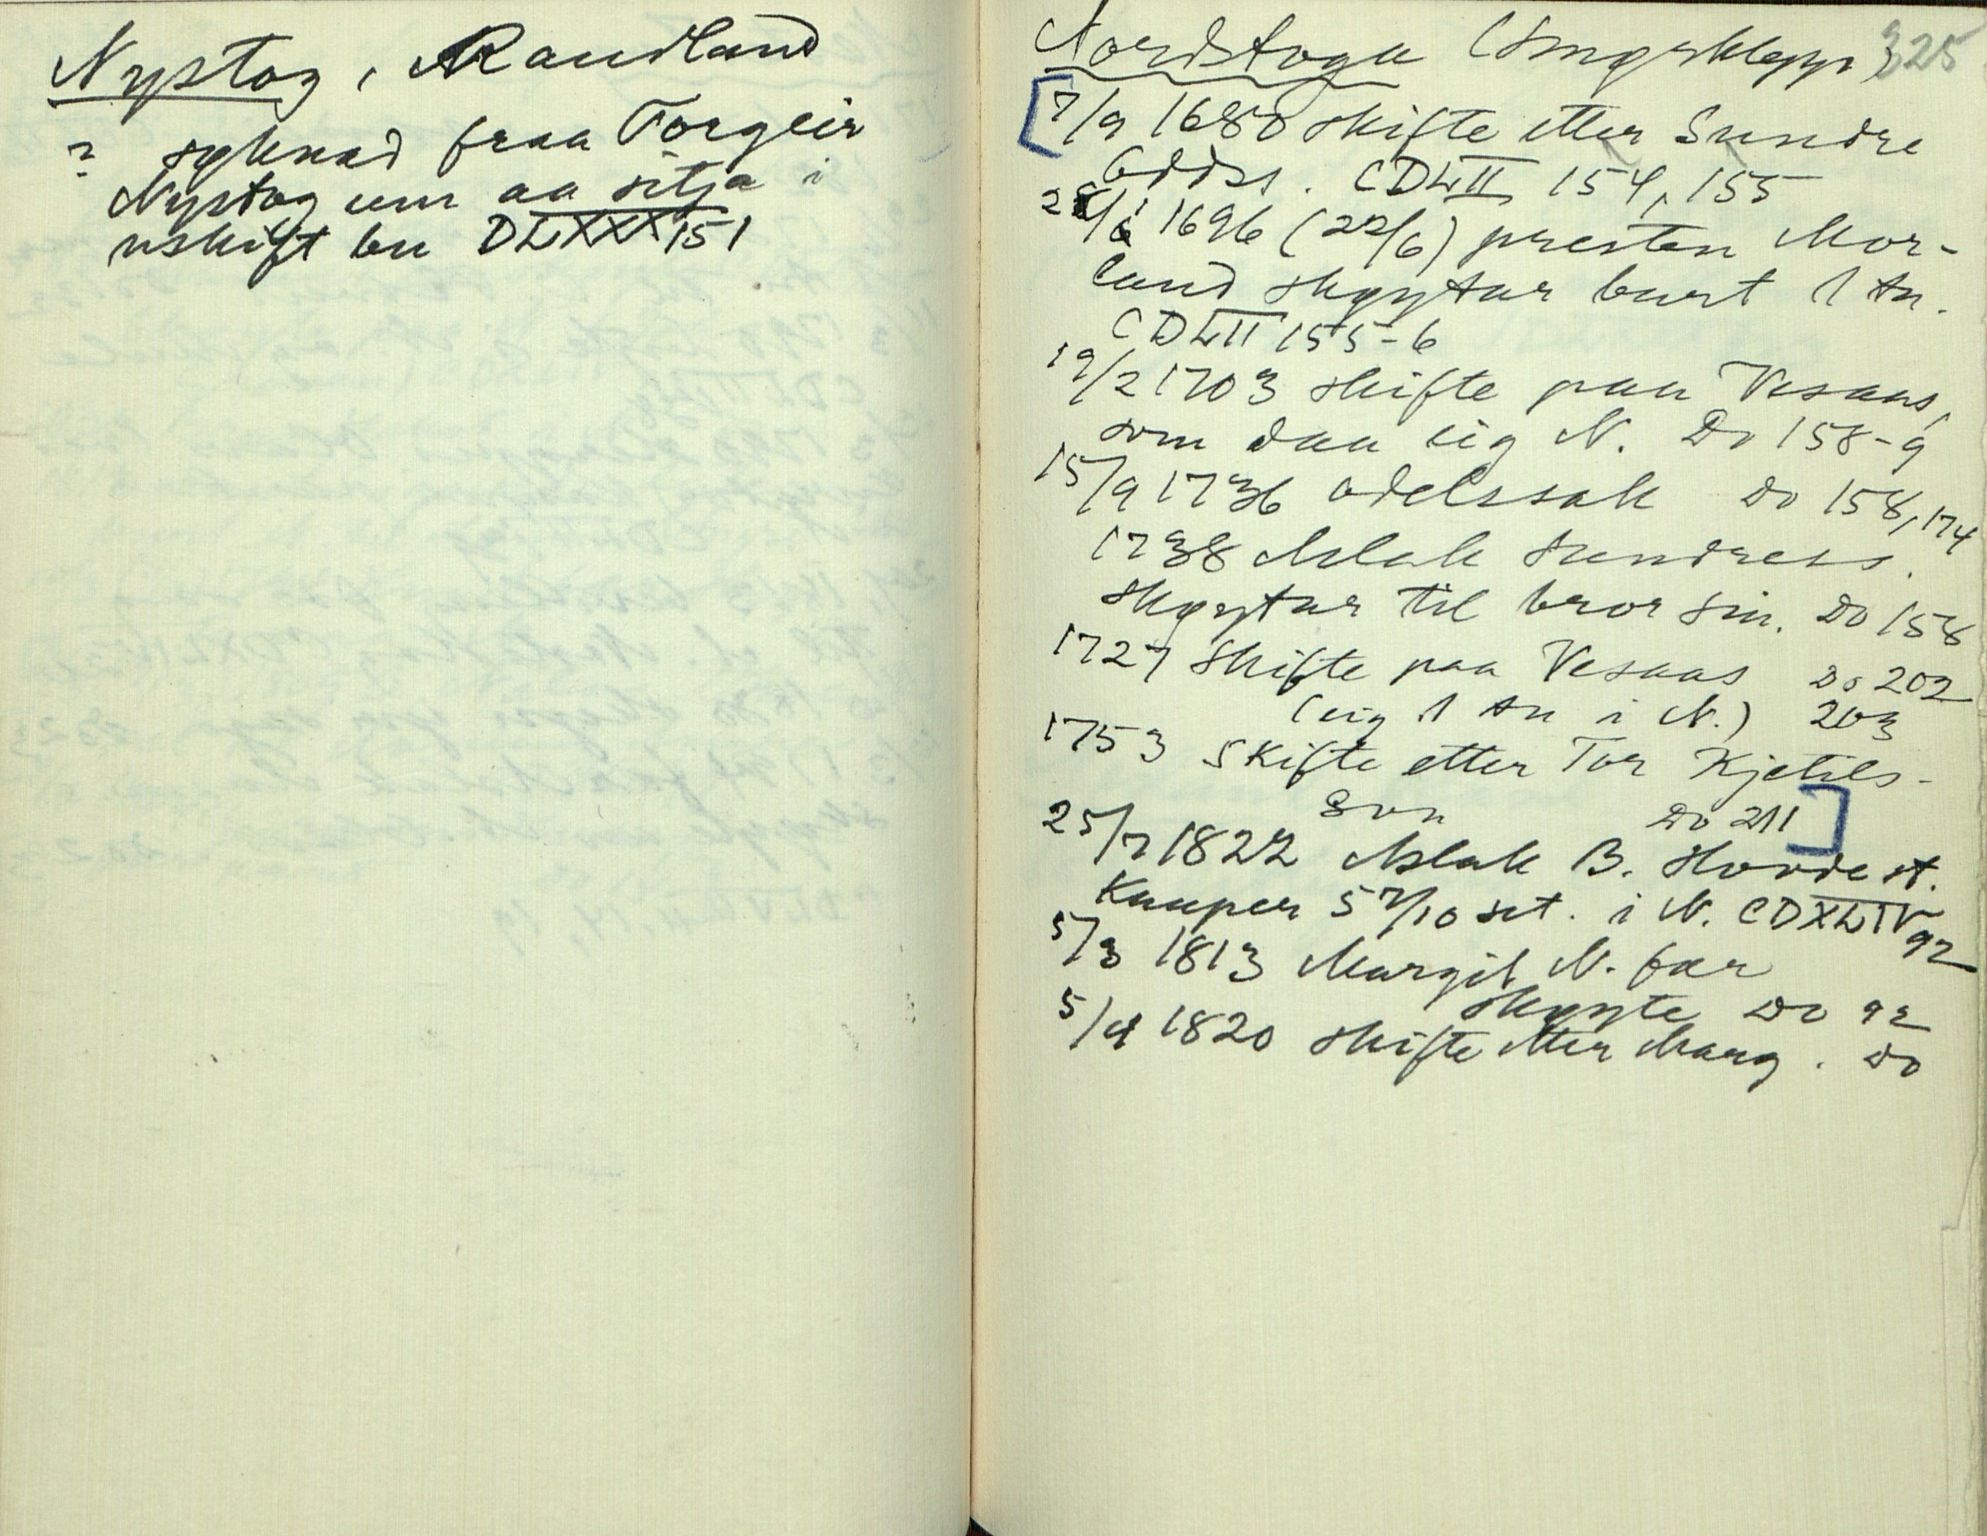 Nystog, Raudland
? syknad fraa Torgeir
Nystog um aa sitja i
uskift bu DLXXX 151
Nordstoga (Smørklepp) 325
[7/9 1680 skifte etter Sundre
Oddss. CDLII 154, 155
28/6 1696 (22/6) presten Mor-
land skøytar burt 1 tn.
CDLII 155-6
19/2 1703 skifte paa Vesaas,
som daa eig N. Do 158-9
15/9 1736 odelssak Do 158, 174
1738 Aslak Sundress.
skøytar til bror sin. Do 158
1727 Skifte paa Vesaas Do 202
(eig 1 tn i N.) 203
1753 Skifte etter Tor Kjetils-
son Do 211]
25/7 1822 Aslak B. Hovde st.
Kauper 5 7/10 set. i N. CDXLIV 92
5/3 1813 Margit N. fær
skøyte Do 92
5/4 1820 skifte etter Marg. Do